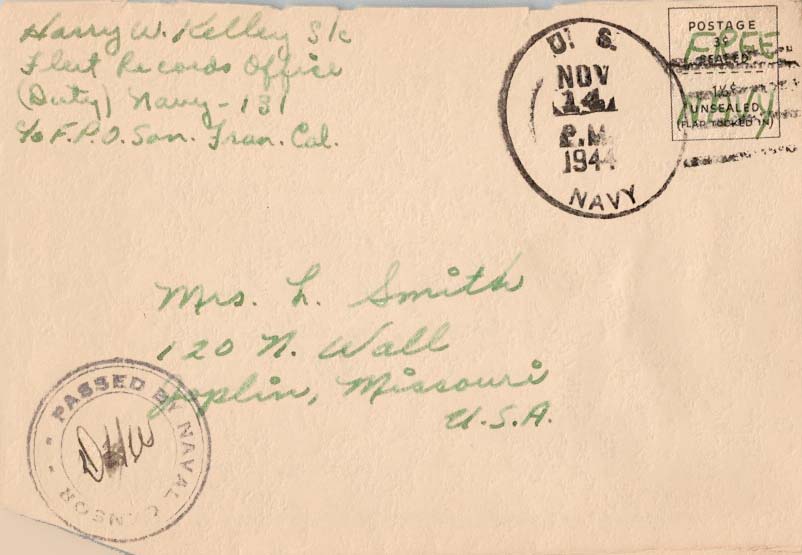 Harry W. Kelley S/c
Fleet Records Office
(Duty) Navy - 131
c/o F.P.O. San. Fran. Cal.
U. S.
NOV
14
P.M.
1944
NAVY
POSTAGE
3¢
SEALED
1½¢
UNSEALED
(FLAP TUCKED IN)
FREE
NAVY
Mrs. L. Smith
120 N. Wall
Joplin, Missouri
U.S.A.
PASSED BY NAVAL CENSOR